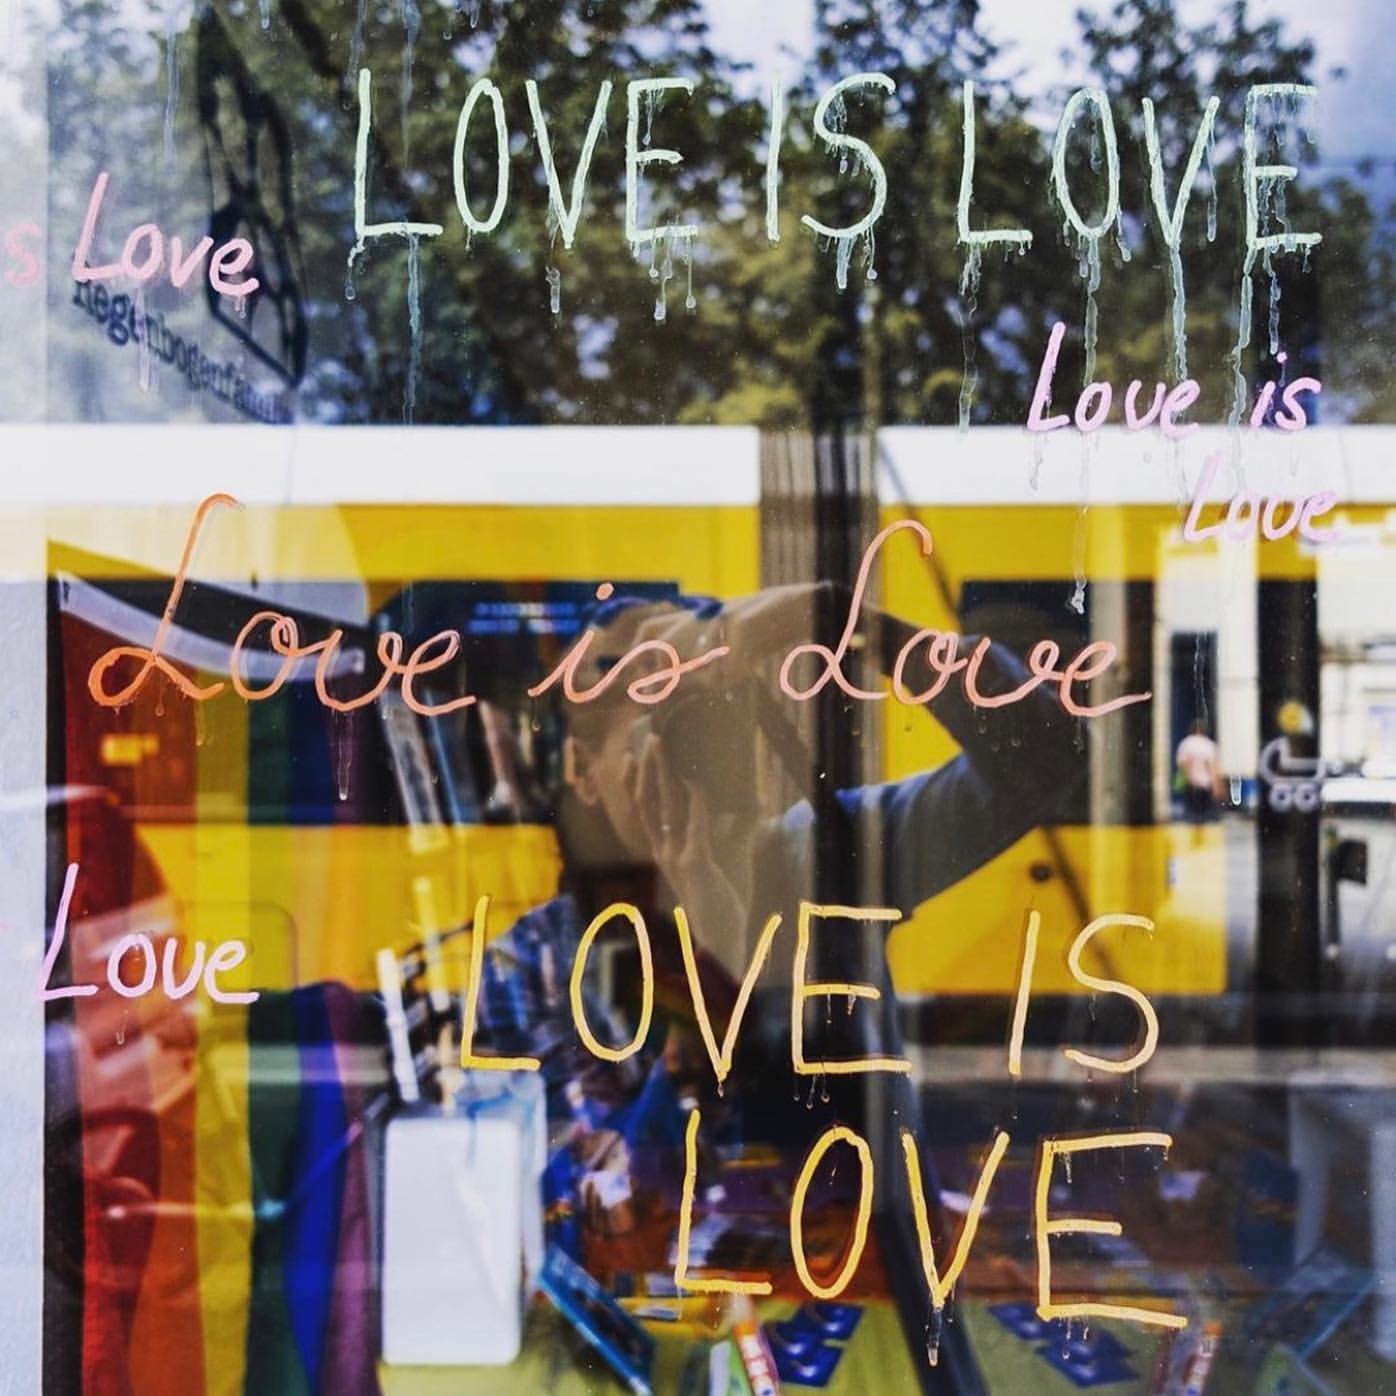 LOVE IS LOVE
s Love
Regenbogenfamil
Love is
Love
Love is Love
Love
LOVE IS
LOVE